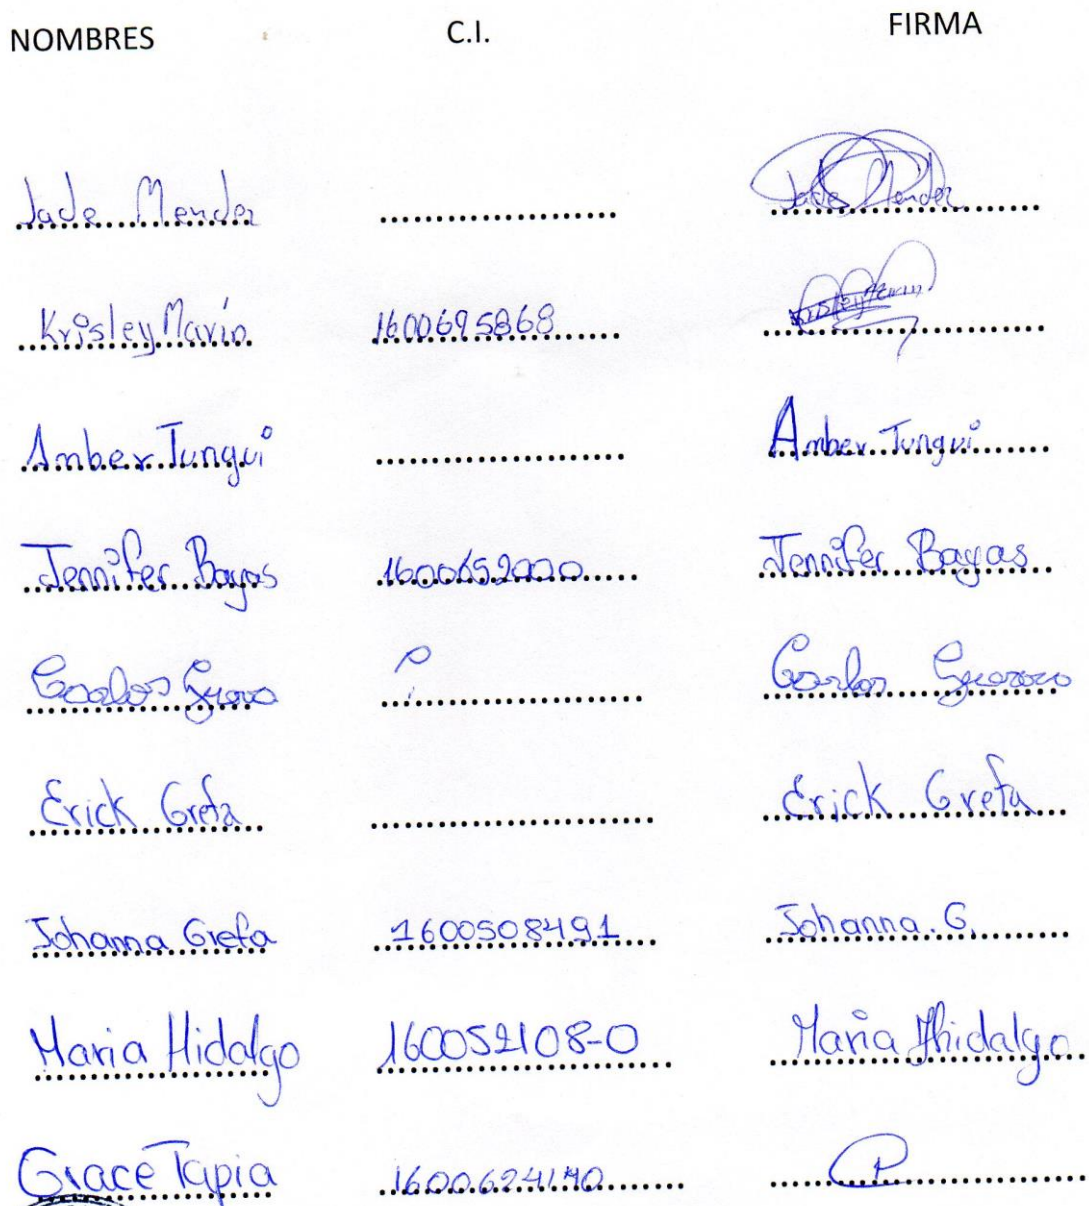 NOMBRES C.I. FIRMA
Jade Mendez Jade Mendez
Krisley Marín 1600695868
Amber Tungui Amber Tungui
Jennifer Bayas 1600652000 Jennifer Bayas
Carlos Carlos
Erick Grefa Erick Grefa
Johanna Grefa 1600508491 Johanna. G.
Maria Hidalgo 160052108-0 Maria Hidalgo
Grace Tapia